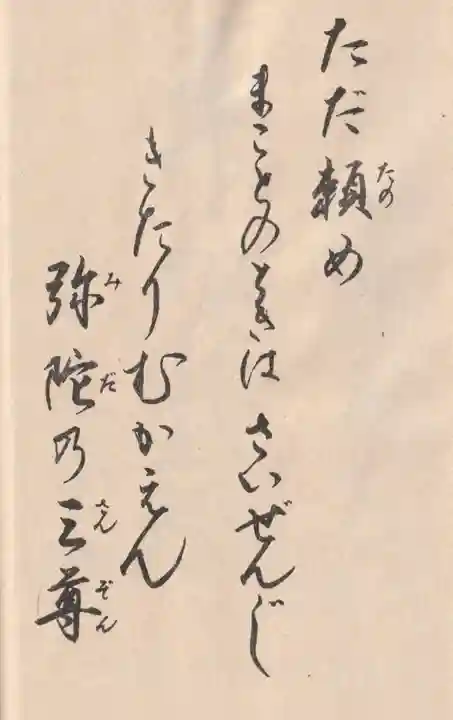 ただ頼め
まことのときは さいぜんじ
きたりむかえん
弥陀乃三尊